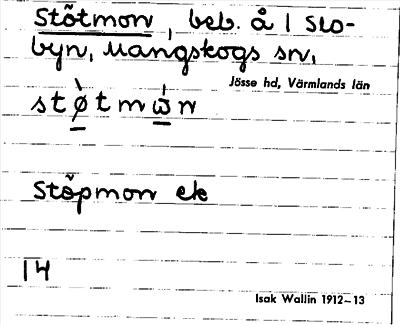 Stötmon, beb. å 1 Slo-
byn, Mangskogs sn,
Jösse hd, Värmlands län
stø̀tmὼn
Stöpmon ek
14
Isak Wallin 1912–13